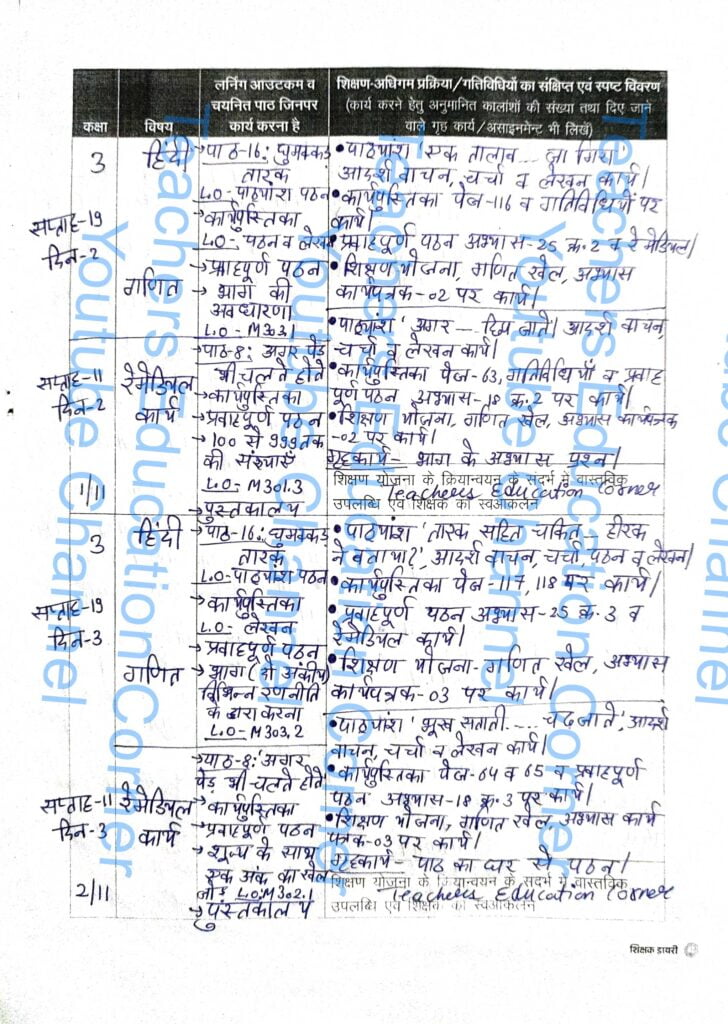 कक्षा
विषय
लर्निंग आउटकम व
चयनित पाठ जिनपर
कार्य करना है
शिक्षण-अधिगम प्रक्रिया/गतिविधियों का संक्षिप्त एवं स्पष्ट विवरण
(कार्य करने हेतु अनुमानित कालांशों की संख्या तथा दिए जाने
वाले गृह कार्य/असाइनमेन्ट भी लिखें)
3
सप्ताह-19
दिन-2
हिंदी
गणित
→पाठ-16: घुमक्कड़
तारक
L.O- पाठ्यांश पठन
→कार्यपुस्तिका
L.O- पठन व लेखन
→ प्रवाहपूर्ण पठन
→ भाग की
अवधारणा
L.O- M303.1
•पाठ्यांश 'एक तालाब ... जा गिरा'
आदर्श वाचन, चर्चा व लेखन कार्य।
•कार्यपुस्तिका पेज-116 व गतिविधियों पर
कार्य।
•प्रवाहपूर्ण पठन अभ्यास-25 क्र.2 व रेमेडियल।
•शिक्षण योजना, गणित खेल, अभ्यास
कार्यपत्रक-02 पर कार्य।
सप्ताह-11
दिन-2
1/11
रेमेडियल
कार्य
→पाठ-8: अगर पेड़
भी चलते होते
→कार्यपुस्तिका
→प्रवाहपूर्ण पठन
→100 से 999 तक
की संख्याएँ
L.O- M301.3
→ पुस्तकालय
•पाठ्यांश 'अगर --- छिप जाते।' आदर्श वाचन,
चर्चा व लेखन कार्य।
•कार्यपुस्तिका पेज-63, गतिविधियों व प्रवाह
पूर्ण पठन अभ्यास-18 क्र.2 पर कार्य।
•शिक्षण योजना, गणित खेल, अभ्यास कार्यपत्रक
-02 पर कार्य।
गृहकार्य- भाग के अभ्यास प्रश्न।
शिक्षण योजना के क्रियान्वयन के संदर्भ में वास्तविक
Teachers Education Corner
उपलब्धि एवं शिक्षक का स्वआंकलन
3
सप्ताह-19
दिन-3
हिंदी
गणित
→पाठ-16: घुमक्कड़
तारक
L.O-पाठ्यांश पठन
→कार्यपुस्तिका
L.O- लेखन
→ प्रवाहपूर्ण पठन
→भाग (दो अंकीय)
विभिन्न रणनीति
के द्वारा करना
L.O- M303.2
•पाठ्यांश 'तारक सहित चकित... हीरक
ने बताया?', आदर्श वाचन, चर्चा, पठन व लेखन।
•कार्यपुस्तिका पेज-117, 118 पर कार्य।
•प्रवाहपूर्ण पठन अभ्यास-25 क्र.3 व
रेमेडियल कार्य।
•शिक्षण योजना-गणित खेल, अभ्यास
कार्यपत्रक-03 पर कार्य।
सप्ताह-11
दिन-3
2/11
रेमेडियल
कार्य
→पाठ-8: 'अगर
पेड़ भी चलते होते'
→कार्यपुस्तिका
→प्रवाहपूर्ण पठन
→ शून्य के साथ
एक अंक का खेल
जोड़ L.O:M302.1
→पुस्तकालय
•पाठ्यांश 'भूख सताती ... चढ़ जाते', आदर्श
वाचन, चर्चा व लेखन कार्य।
•कार्यपुस्तिका पेज-64 व 65 व प्रवाहपूर्ण
पठन अभ्यास-18 क्र.3 पर कार्य।
•शिक्षण योजना, गणित खेल, अभ्यास कार्य
पत्रक-03 पर कार्य।
गृहकार्य- पाठ का घर से पठन।
शिक्षण योजना के क्रियान्वयन के संदर्भ में वास्तविक
Teachers Education Corner
उपलब्धि एवं शिक्षक का स्वआंकलन
शिक्षक डायरी
Teachers Education Corner
Youtube Channel
Teachers Education Corner
Youtube Channel
Teachers Education Corner
Youtube Channel